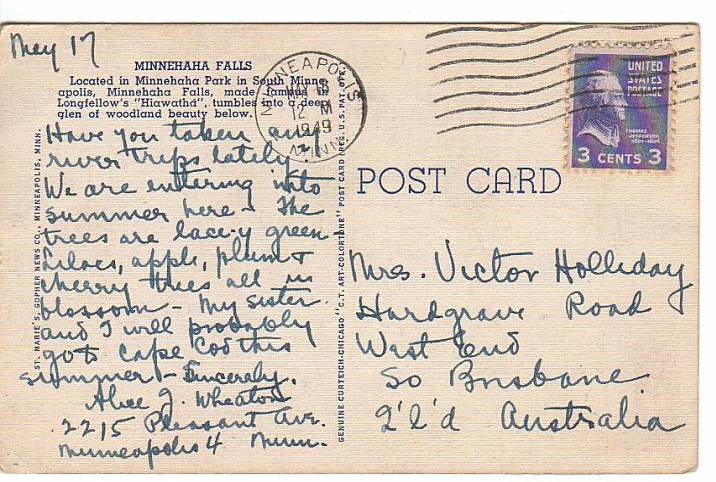 May 17
MINNEHAHA FALLS
Located in Minnehaha Park in South Minne-
apolis, Minnehaha Falls, made famous in
Longfellow's "Hiawatha", tumbles into a deep
glen of woodland beauty below.
Have you taken any
river trips lately -
We are entering into
summer here - The
trees are lace-y green -
Lilacs, apple, plum &
cherry trees all in
blossom - My sister
and I will probably
go to Cape Cod this
summer - Sincerely,
Alice J. Wheaton
2215 Pleasant Ave.
Minneapolis 4 Minn.
ST. MARIE'S GOPHER NEWS CO., MINNEAPOLIS, MINN.
GENUINE CURTEICH-CHICAGO "C.T. ART-COLORTONE" POST CARD (REG. U.S. PAT. OFF.)
MINNEAPOLIS
12 M
1949
MINN.
UNITED
STATES
POSTAGE
THOMAS
JEFFERSON
1801-1809
3 CENTS 3
POST CARD
Mrs. Victor Holliday
Hardgrave Road
West End
So Brisbane
Q'l'd Australia